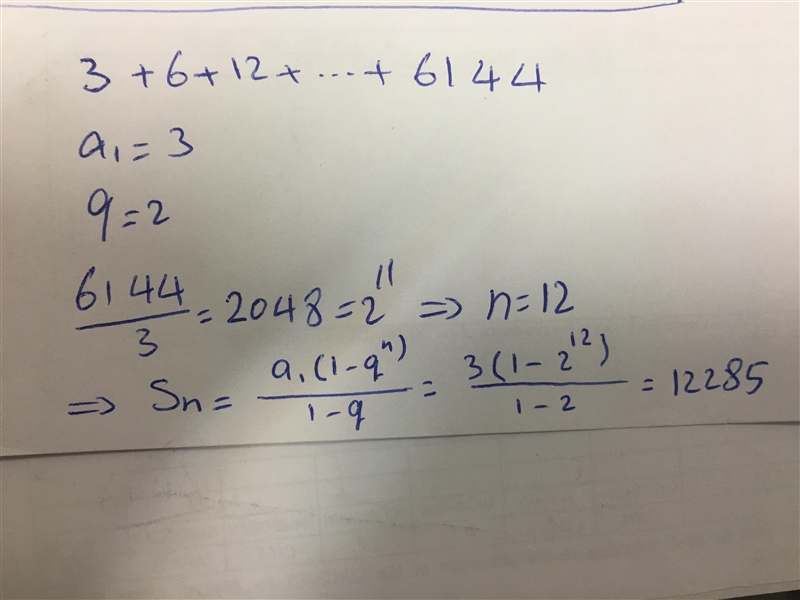 3 + 6 + 12 + ... + 6144
a₁ = 3
q = 2
6144/3 = 2048 = 2¹¹ ⇒ n = 12
⇒ Sn = a₁(1-qⁿ)/1-q = 3(1-2¹²)/1-2 = 12285